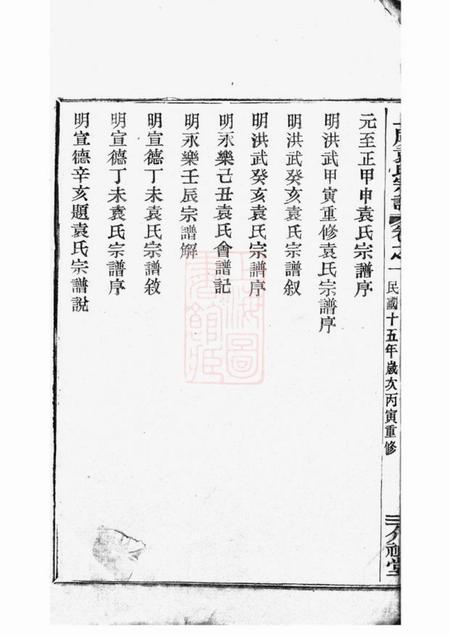 袁氏宗譜 卷之一 民國十五年歲次丙寅重修 介祉堂
元至正甲申袁氏宗譜序
明洪武甲寅重修袁氏宗譜序
明洪武癸亥袁氏宗譜叙
明洪武癸亥袁氏宗譜序
明永樂己丑袁氏會譜記
明永樂壬辰宗譜解
明宣德丁未袁氏宗譜敘
明宣德丁未袁氏宗譜序
明宣德辛亥題袁氏宗譜說
上海圖書館藏